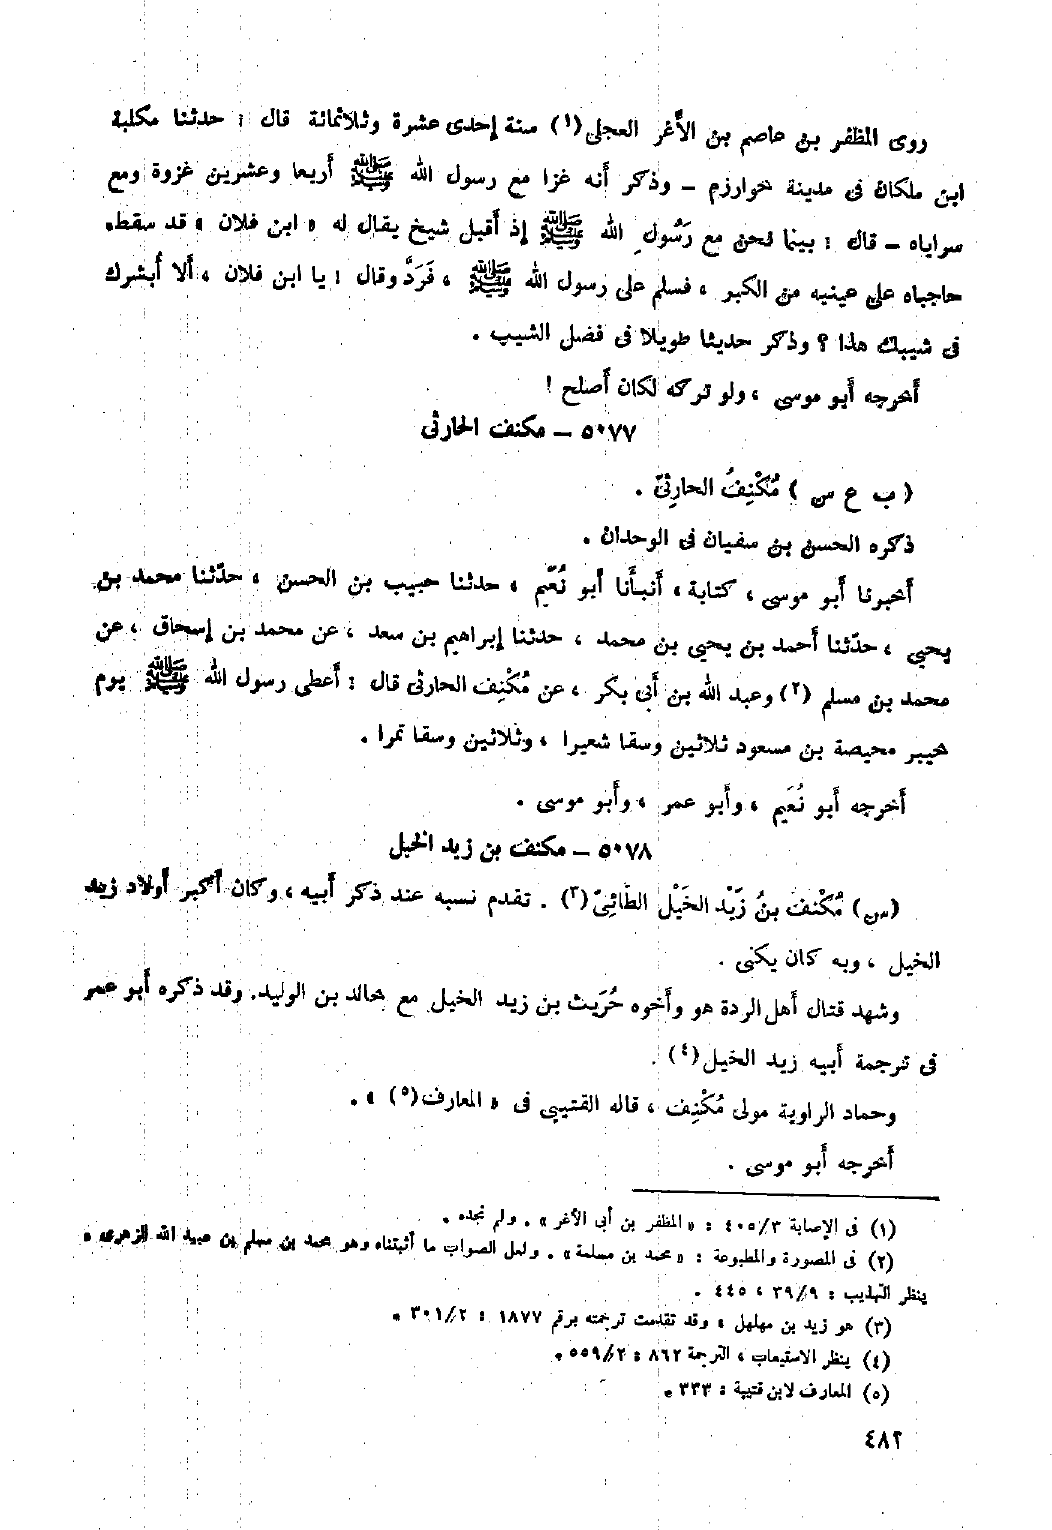 روى المظفر بن عاصم بن الأَغر العجلى (١) سنة إحدى عشرة وثلاثمائة قال : حدثنا مكلبة
ابن ملكان فى مدينة خوارزم – وذكر أنه غزا مع رسول الله ﷺ أَربعا وعشرين غزوة ومع
سراياه – قال : بينما نحن مع رَسُولِ الله ﷺ إذ أَقبل شيخ يقال له « ابن فلان » قد سقط
حاجباه على عينيه من الكبر ، فسلم على رسول الله ﷺ ، فَرَدَّ وقال : يا ابن فلان ، أَلا أُبشرك
فى شيبك هذا ؟ وذكر حديثا طويلا فى فضل الشيب .
أَخرجه أَبو موسى ، ولو تركه لكان أَصلح !
٥٠٧٧ – مكنف الحارثى
( ب ع س ) مُكْنِفُ الحارِثِىّ .
ذكره الحسن بن سفيان فى الوحدان .
أَخبرنا أَبو موسى ، كتابة ، أَنبأَنا أَبو نُعَيم ، حدثنا حبيب بن الحسن ، حدّثنا محمد بن
يحيى ، حدّثنا أَحمد بن يحيى بن محمد ، حدثنا إبراهيم بن سعد ، عن محمد بن إسحاق ، عن
محمد بن مسلم (٢) وعبد الله بن أَبى بكر ، عن مُكْنِف الحارثى قال : أَعطى رسول الله ﷺ يوم
خيبر محيصة بن مسعود ثلاثين وسقا شعيرا ، وثلاثين وسقا تمرا .
أَخرجه أَبو نُعَيم ، وأَبو عمر ، وأَبو موسى .
٥٠٧٨ – مكنف بن زيد الخيل
(س) مُكْنف بنُ زَيْد الخَيْل الطَّائِىّ (٣) . تقدم نسبه عند ذكر أَبيه ، وكان أَكبر أَولاد زيد
الخيل ، وبه كان يكنى .
وشهد قتال أَهل الردة هو وأَخوه حُرَيث بن زيد الخيل مع خالد بن الوليد. وقد ذكره أَبو عمر
فى ترجمة أَبيه زيد الخيل (٤) .
وحماد الراوية مولى مُكْنِف ، قاله القتيبى فى « المعارف (٥) » .
أَخرجه أَبو موسى .
(١) فى الإصابة ٤٠٥/٣ : « المظفر بن أبى الأغر » . ولم نجده .
(٢) فى المصورة والمطبوعة : « محمد بن مسلمة » . ولعل الصواب ما أثبتناه وهو محمد بن مسلم بن عبيد الله الزهرى ،
ينظر التهذيب : ٣٩/٩ ، ٤٤٥ .
(٣) هو زيد بن مهلهل ، وقد تقدمت ترجمته برقم ١٨٧٧ : ٣٠١/٢ .
(٤) ينظر الاستيعاب ، الترجمة ٨٦٢ : ٥٥٩/٢ .
(٥) المعارف لابن قتيبة : ٣٣٣ .
٤٨٢